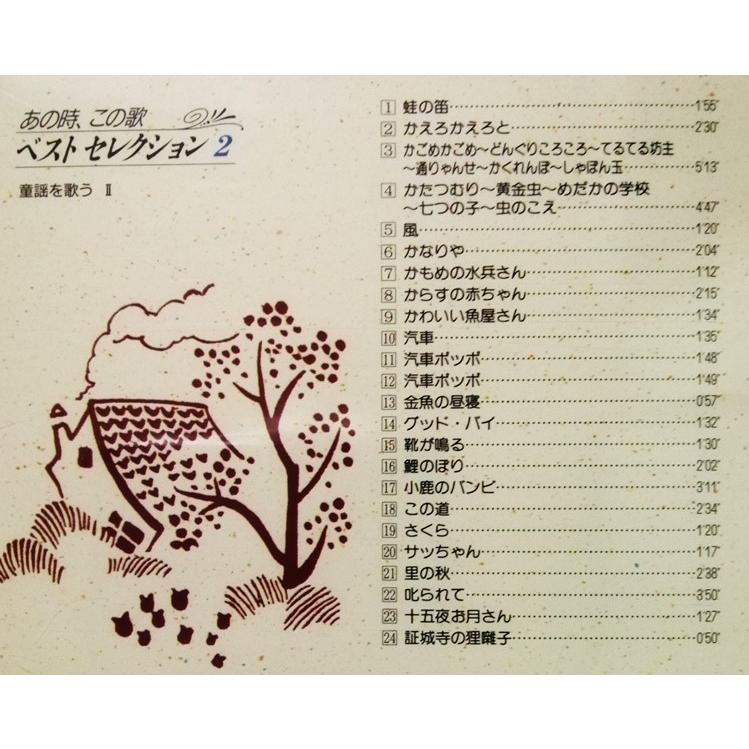 あの時、この歌
ベスト セレクション 2
童謡を歌う Ⅱ
1 蛙の笛 1'55"
2 かえろかえろと 2'30"
3 かごめかごめ〜どんぐりころころ〜てるてる坊主
〜通りゃんせ〜かくれんぼ〜しゃぼん玉 5'13
4 かたつむり〜黄金虫〜めだかの学校
〜七つの子〜虫のこえ 4'47"
5 風 1'20"
6 かなりや 2'04"
7 かもめの水兵さん 1'12"
8 からすの赤ちゃん 2'15"
9 かわいい魚屋さん 1'34"
10 汽車 1'35"
11 汽車ポッポ 1'48"
12 汽車ポッポ 1'49"
13 金魚の昼寝 0'57"
14 グッド・バイ 1'32"
15 靴が鳴る 1'30"
16 鯉のぼり 2'02"
17 小鹿のバンビ 3'11"
18 この道 2'34"
19 さくら 1'20"
20 サッちゃん 1'17"
21 里の秋 2'38"
22 叱られて 3'50"
23 十五夜お月さん 1'27"
24 証城寺の狸囃子 0'50"